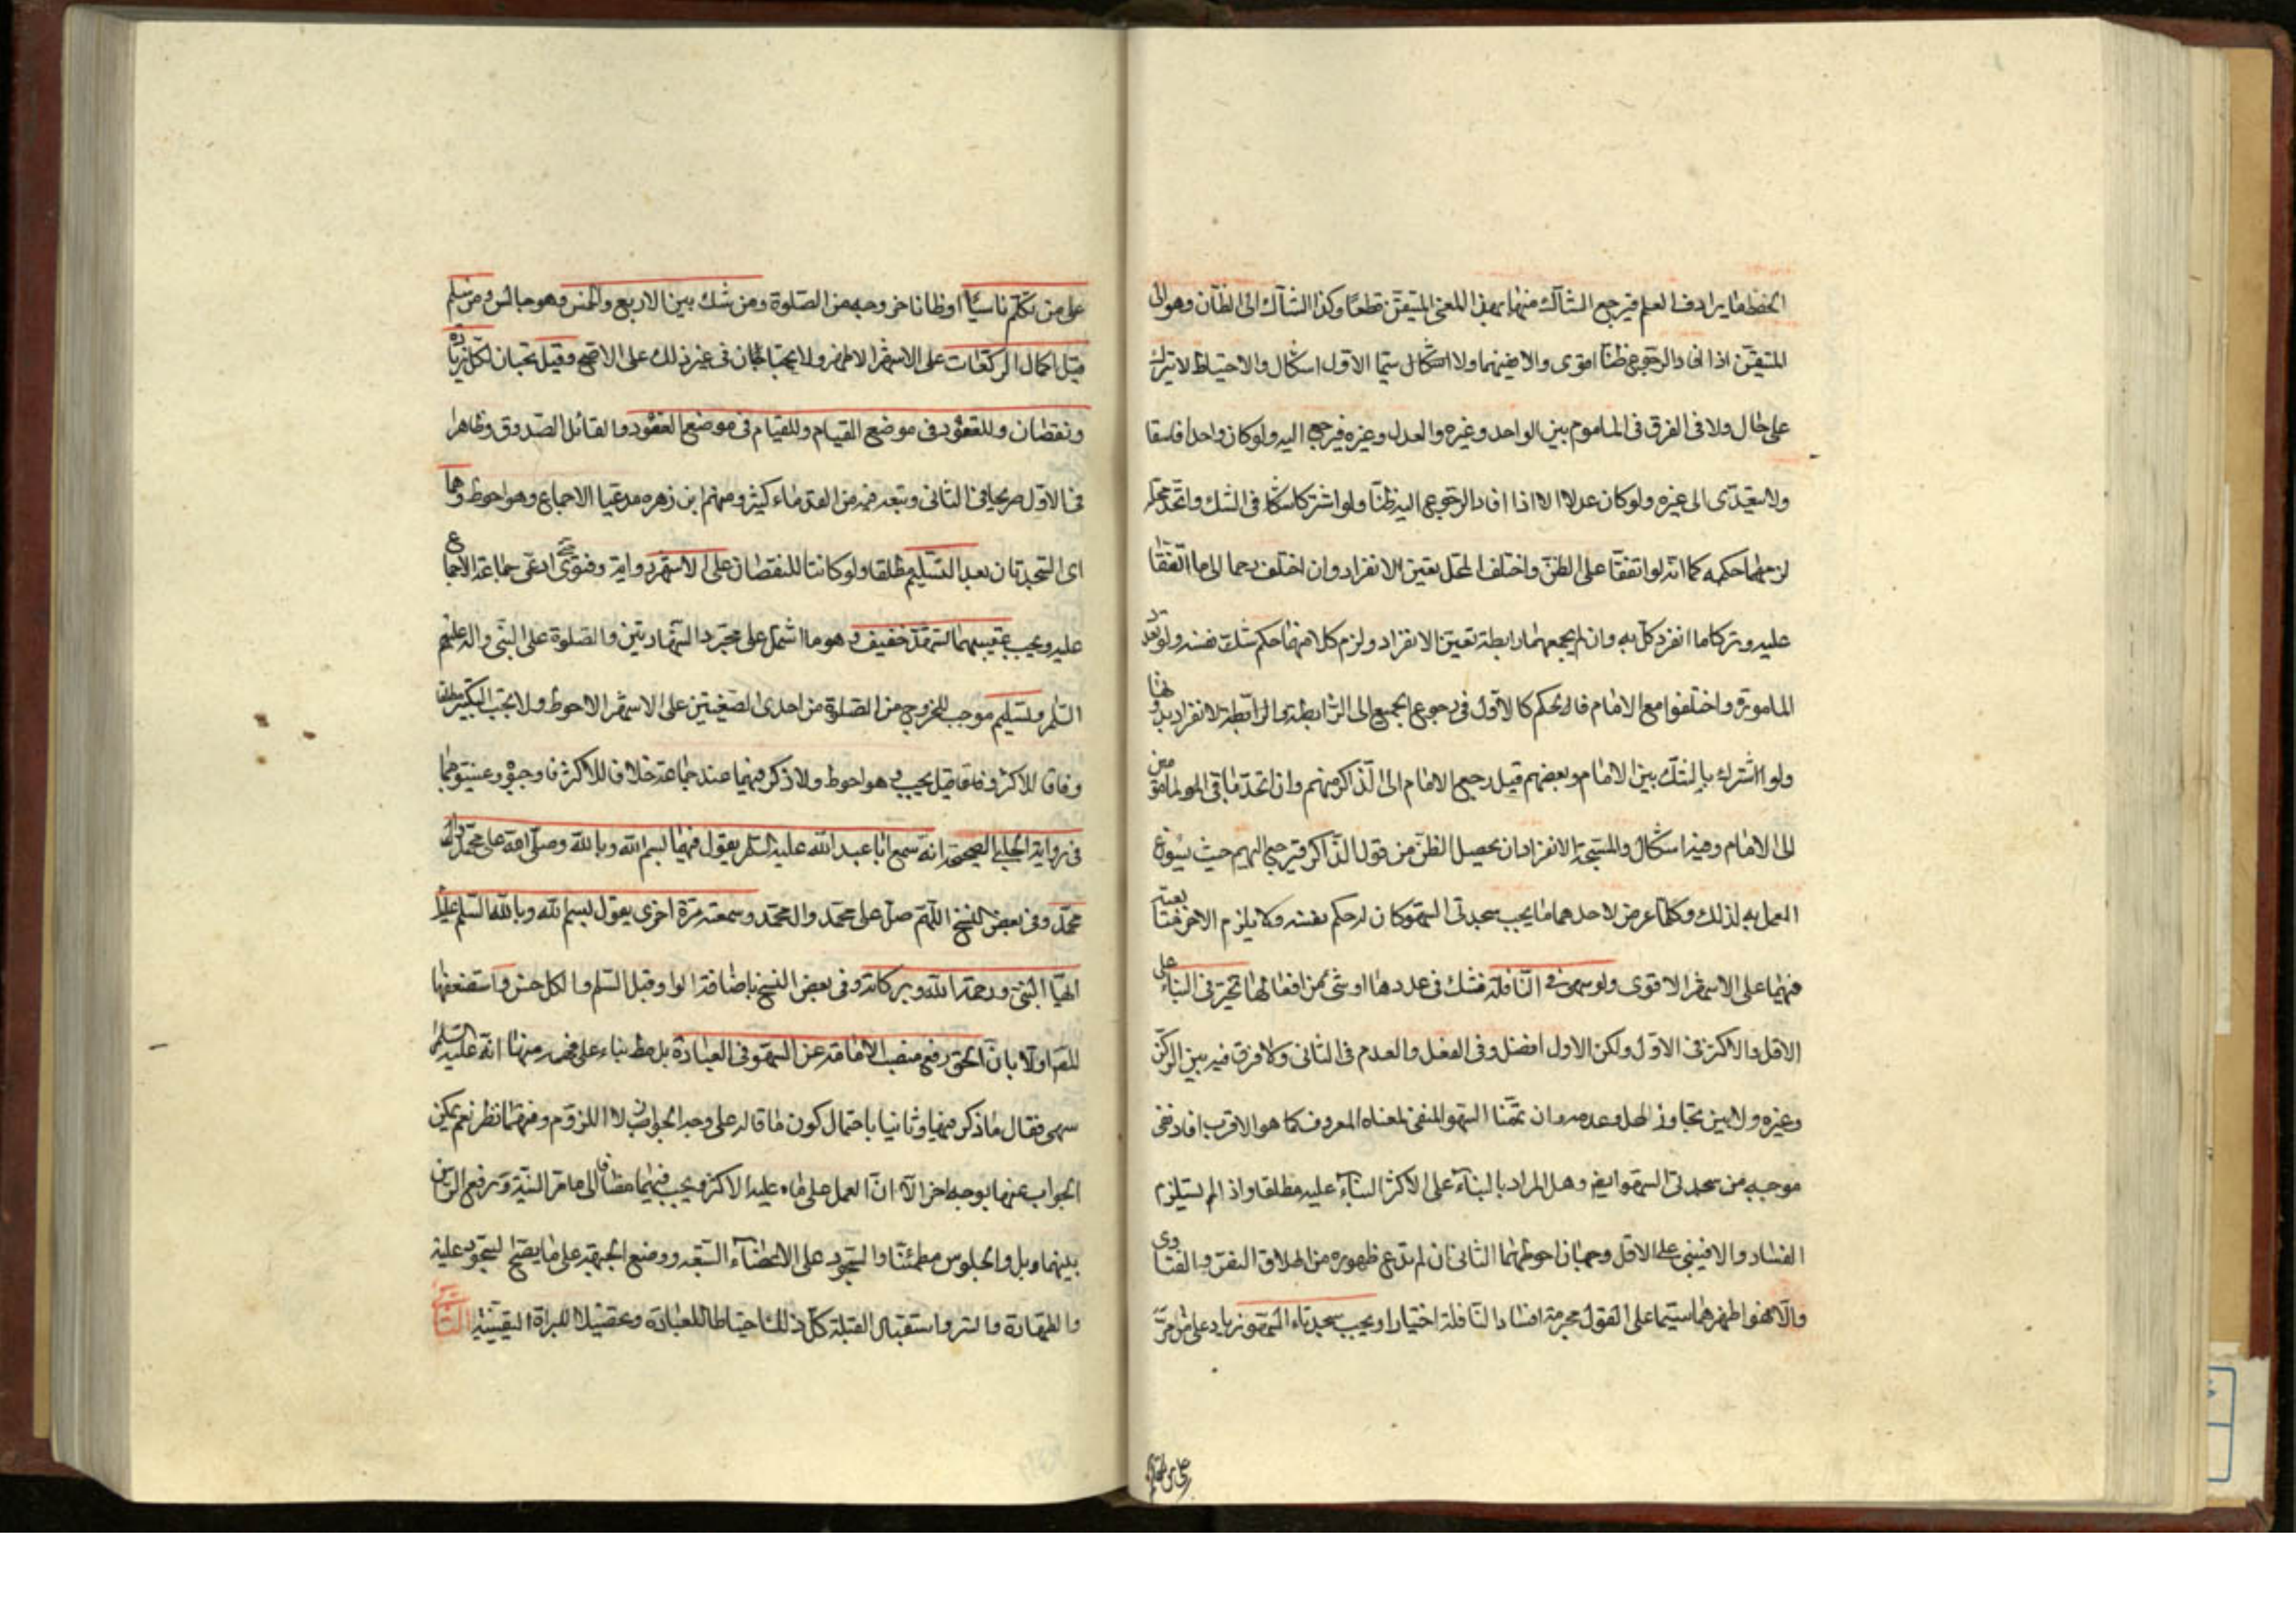 الحفظ ما يرادف العلم فيرجع الشاك منهما بهذا المعنى المتيقن قطعا وكذا الشاك الى الظان وهو الى
المتيقن اذا افاد الرجوع ظنا اقوى والا ففيهما ولا اشكال سيما الاول اشكال والاحتياط لا يترك
على حال ولا فى الفرق فى الماموم بين الواحد وغيره والعدل وغيره فيرجع اليه ولو كان واحدا فاسقا
ولا يتعدى الى غيره ولو كان عدلا الا اذا افاد الرجوع اليه ظنا ولو اشتركا شكا فى الشك واتحد محله
لزمهما حكمه كما انه لو اتفقا على الظن واختلف المحل تعين الانفراد وان اختلف رجعا الى ما اتفقا
عليه وتركا ما انفرد كل به وان لم يجمعهما رابطة تعين الانفراد ولزم كلا منهما حكم شك نفسه ولو تعدد
الماموم واختلفوا مع الامام فالحكم كالاول فى رجوع الجميع الى الرابطة والانفراد بدونها
ولو اشترك بالشك بين الامام وبعضهم قيل رجع الامام الى الذاكر منهم وان اتحد باقى المامومين
الى الامام وفيه اشكال والمتجه الانفراد ان يحصل الظن من قول الذاكر فيرجع اليهم حيث يسوغ
العمل به لذلك وكلما عرض لاحدهما ما يجب سجدتى السهو كان له حكم نفسه ولا يلزم الاخر متابعته
فيهما على الاشهر الاقوى ولو سهى فى النافلة فشك فى عددها او شئ من افعالها تخير فى البناء على
الاقل والاكثر فى الاول ولكن الاول افضل وفى الفعل والعدم فى الثانى ولا فرق فيه بين الركن
وغيره ولا بين تجاوز المحل وعدمه وان عممنا السهو المنفى لمعناه المعروف كما هو الاقرب افاد نفى
موجبه من سجدتى السهو ايضا وهل المراد بالبناء على الاكثر البناء عليه مطلقا واذا لم يستلزم
الفساد والا فيبنى على الاقل وجهان احوطهما الثانى ان لم ندع ظهوره من اطلاق النص والفتاوى
والا فهو اظهرهما سيما على القول بحرمة افساد النافلة اختيارا ويجب سجدتاء السهو زياد على ما مر
على من تكلم
على من تكلم ناسيا او ظانا خروجه من الصلوة ومن شك بين الاربع والخمس وهو جالس ومن سلم
قبل اكمال الركعات على الاشهر الاظهر ولا يجبان فى غير ذلك على الاصح وقيل تجبان لكل زيادة
ونقصان وللقعود فى موضع القيام وللقيام فى موضع القعود والقائل الصدوق وظاهرا
فى الاول صريحا فى الثانى وتبعه فيه من القدماء كثير ومنهم ابن زهره مدعيا الاجماع وهو احوط وهما
اى السجدتان بعد التسليم مطلقا ولو كانتا للنقصان على الاشهر رواية وفتوى ادعى جماعة الاجماع
عليه ويجب عقيبهما تشهد خفيف وهو ما اشتمل على مجرد الشهادتين والصلوة على النبى واله عليهم
السلم وتسليم موجب للخروج من الصلوة من احدى الصيغتين على الاشهر الاحوط ولا يجب التكبير مطلقا
وفاقا للاكثر وقيل يجب وهو احوط ولا ذكر فيهما عند جماعة خلافا للاكثر فاوجبوه وعينوهما
فى رواية الحلبى الصحيحة انه سمع ابا عبد الله عليه السلم يقول فيهما بسم الله وبالله وصلى الله على محمد وال
محمد وفى بعض النسخ اللهم صل على محمد وال محمد وسمعته مرة اخرى يقول بسم الله وبالله السلم عليك
ايها النبى ورحمة الله وبركاته وفى بعض النسخ باضافة الواو قبل السلم والكل حسن واستضعفها
المص اولا بان الحق رفع منصب الامامة عن السهو فى العبادة بناء على منها انه عليه السلم
سهى فقال ما ذكر فيها وثانيا باحتمال كون ما قاله على وجه الجواز لا اللزوم وفيهما نظر نعم يمكن
الجواب عنها بوجه اخر الا ان العمل على ما عليه الاكثر ويجب فيهما مضافا الى ما مر النية ورفع الراس
بينهما وبل والجلوس مطمئنا والسجود على الاعضاء السبعة ووضع الجبهة على ما يصح السجود عليه
والطهارة والستر واستقبال القبلة كل ذلك احتياطا للعبادة وتحصيلا للبراة اليقينية